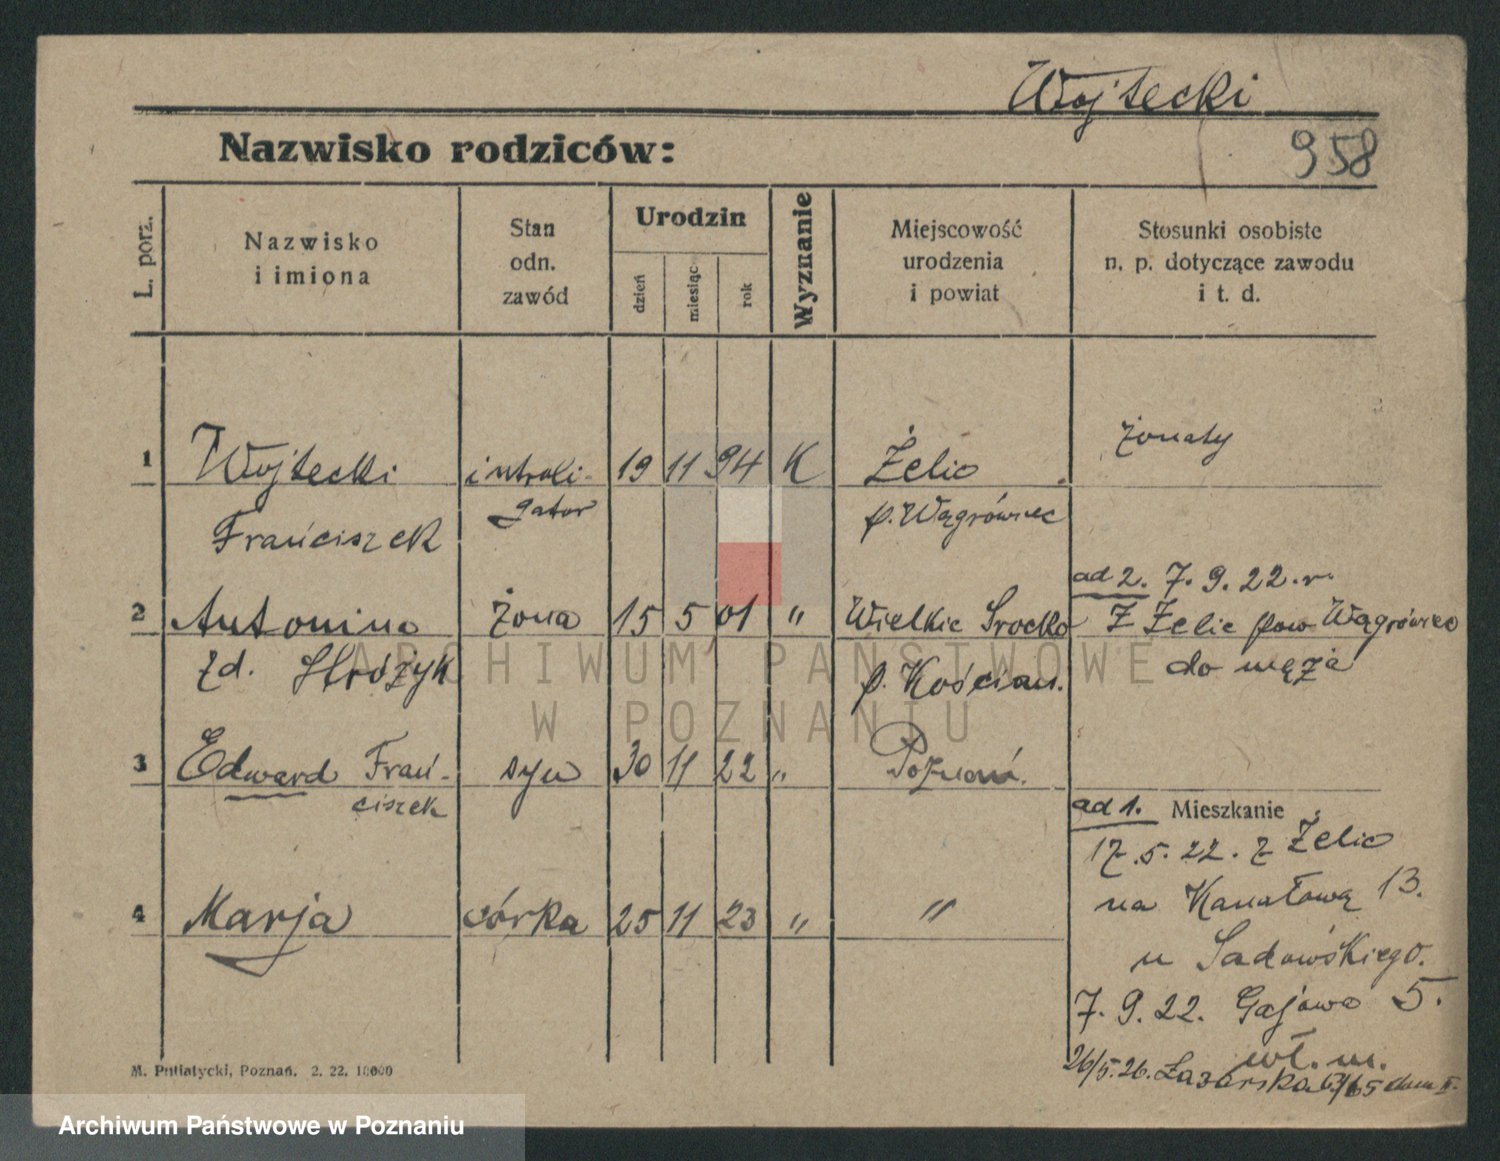 Wojtecki
Nazwisko rodziców:
958
L. porz.
Nazwisko
i imiona
Stan
odn.
zawód
Urodzin
dzień
miesiąc
rok
Wyznanie
Miejscowość
urodzenia
i powiat
Stosunki osobiste
n. p. dotyczące zawodu
i t. d.
żonaty
1 Wojtecki introli- 19 11 94 K Żelic
gator p. Wągrówiec
Franciszek
ad 2. 7. 9. 22. r.
2 Antonina żona 15 5 01 " Wielkie Srocko Z Żelic pow Wągrówiec
zd. Stróżyk p. Kościan. do męża
3 Edward Fran- syn 30 11 22 " Poznań.
ciszek
ad 1. Mieszkanie
17. 5. 22. z Żelic
na Kanałową 13.
4 Marja córka 25 11 23 " "
u Sadowskiego.
7. 9. 22. Gajowa 5.
wł. m.
26/5. 26. Łazarska 63/65 dom II.
M. Putiatycki, Poznań. 2. 22. 10000
ARCHIWUM PAŃSTWOWE
W POZNANIU
Archiwum Państwowe w Poznaniu